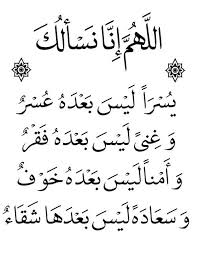 اللَّهُمَّ إِنَّا نَسْأَلُكَ
يُسْرَاً لَيْسَ بَعْدَهُ عُسْرٌ
وَ غِنىً لَيْسَ بَعْدَهُ فَقْرٌ
وَ أَمْناً لَيْسَ بَعْدَهُ خَوْفٌ
وَ سَعَادَةً لَيْسَ بَعْدَهَا شَقَاءٌ